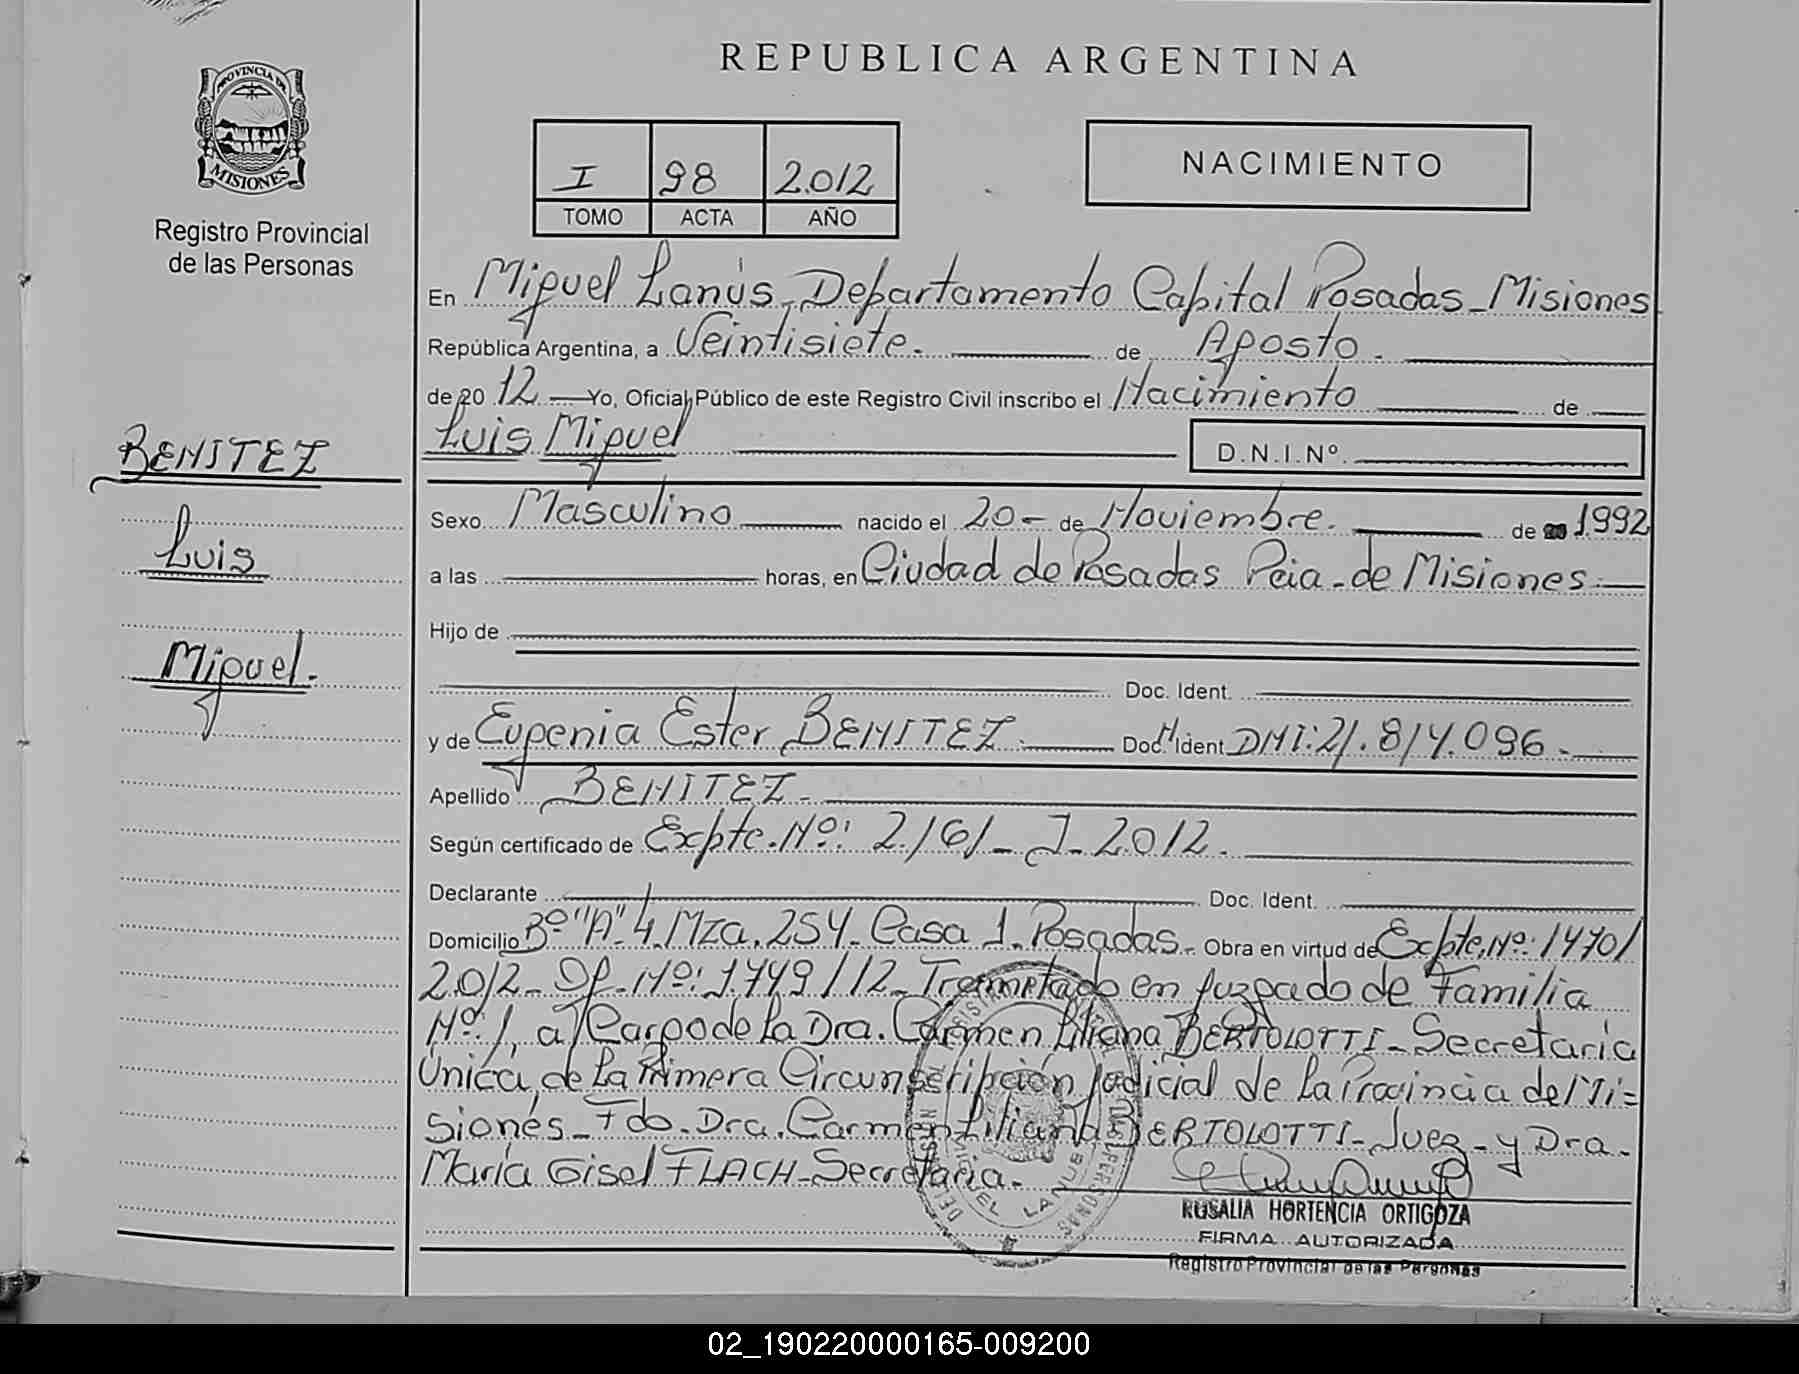 PROVINCIA DE
MISIONES
Registro Provincial
de las Personas
BENITEZ
Luis
Miguel.
REPUBLICA ARGENTINA
I 98 2.012
TOMO ACTA AÑO
NACIMIENTO
En Miguel Lanús - Departamento Capital Posadas - Misiones
República Argentina, a Veintisiete. de Agosto.
de 20 12 Yo, Oficial Público de este Registro Civil inscribo el Nacimiento de
Luis Miguel D.N.I.Nº.
Sexo Masculino nacido el 20 - de Noviembre. de 1.992
a las horas, en Ciudad de Posadas Pcia - de Misiones.
Hijo de
Doc. Ident.
y de Eugenia Ester BENITEZ. Doc. Ident DNI: 21.814.096.
Apellido BENITEZ.
Según certificado de Expte. Nº: 2.161 - J - 2.012.
Declarante Doc. Ident.
Domicilio Bº "A" 4. Mza. 254. Casa 1. Posadas. Obra en virtud de Expte. Nº: 1470/
2.012 - Of. Nº: 1.449/12 - Tramitado en Juzgado de Familia
Nº: 1, a/ Cargo de La Dra. Carmen Liliana BERTOLOTTI - Secretaría
Única, de La Primera Circunscripción Judicial de La Provincia de Mi=
siones - Fdo. Dra. Carmen Liliana BERTOLOTTI - Juez - y Dra.
María Gisel FLACH - Secretaria.
MIGUEL LANUS
ROSALIA HORTENCIA ORTIGOZA
FIRMA AUTORIZADA
Registro Provincial de las Personas
02_190220000165-009200